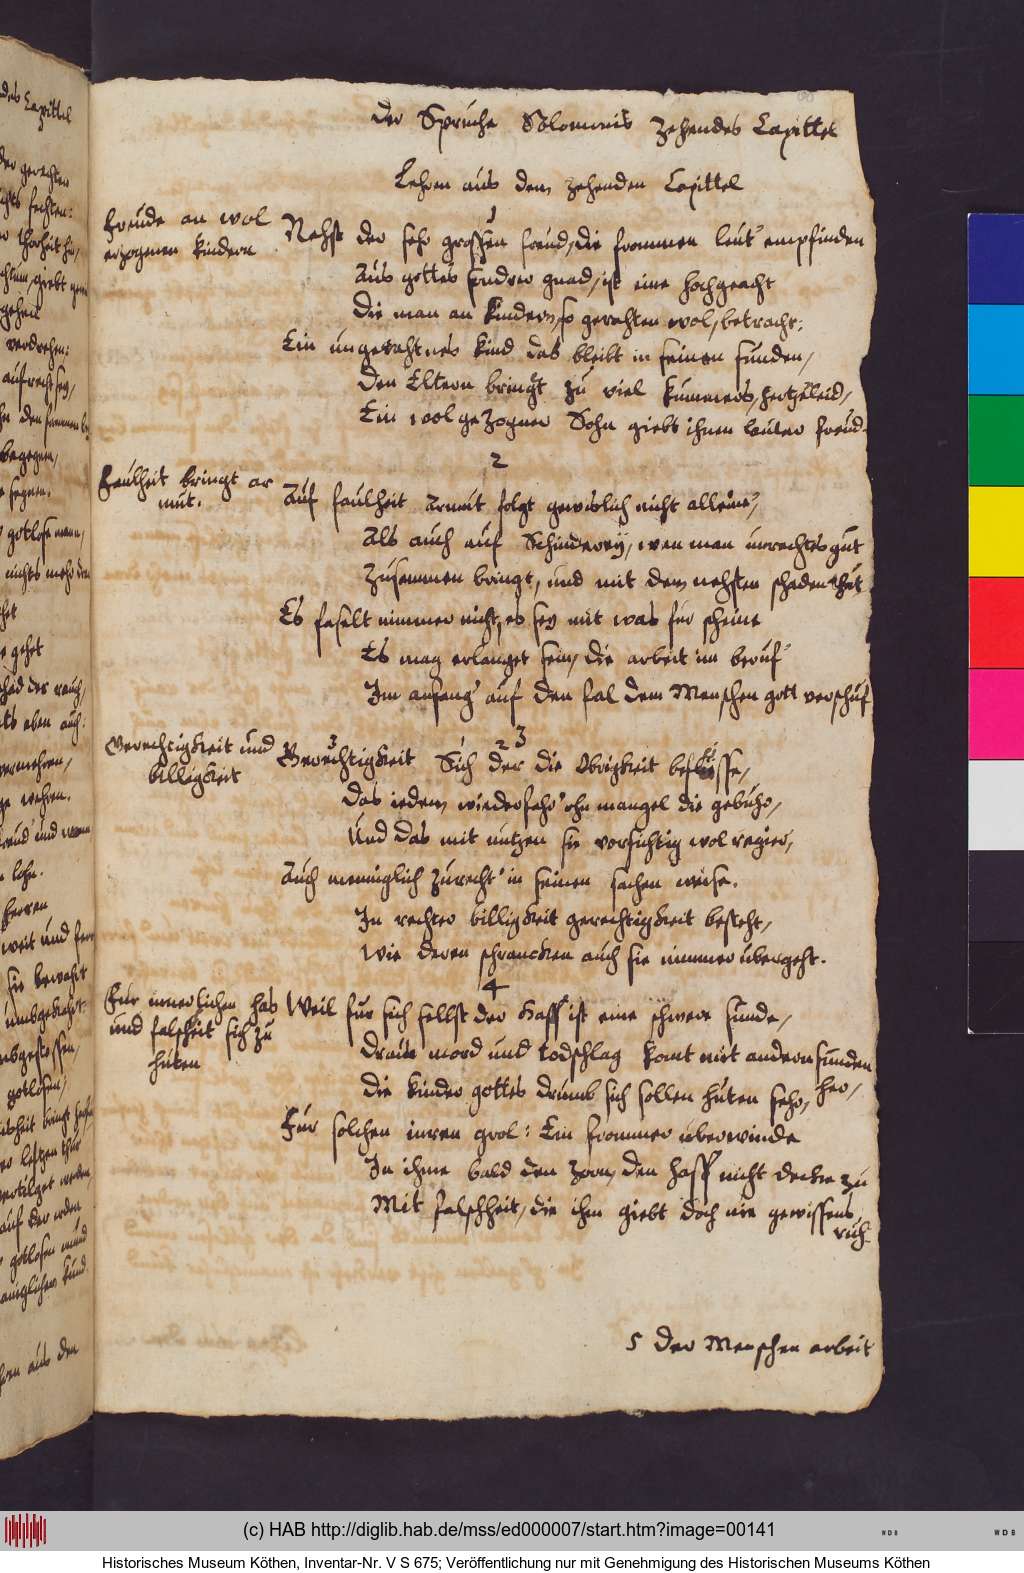 Der Sprüche Solomonis zehendes Capittel
Lehren aus dem zehenden Capittel
Freude an wol
erzogenen kindern
1
Nehst der sehr grossen freud, die frommen leut' empfinden
Aus gottes sondrer gnad, ist eine hochgeacht
Die man an kindern, so gerahten wol, betracht:
Ein ungerahtnes kind das bleibt in seinen sunden,
Den Eltern bringt zu viel kummers, hertzeleid,
Ein wol gezogner Sohn giebt ihnen lauter freud.
2
Faulheit bringt ar
mut.
Auf faulheit armut folgt gewislich nicht alleine,
Als auch auf Schinderey, wen man unrechtes gut
Zusammen bringt, und mit dem nehsten schaden thut
Es faselt nimmer nicht, es sey mit was für scheine
Es mag erlanget sein, die arbeit im beruf'
Im anfang' auf den fal dem Menschen gott verschuf
3
Gerechtigkeit und
billigkeit
Gerechtigkeit Sich der die Obrigkeit
Das iedem wiederfahr' ohn mangel die gebuhr,
Und das mit nutzen sie vorsichtig wol regier,
Auch menniglich zurecht' in seinen sachen weise.
In rechter billigkeit gerechtigkeit besteht,
Wie deren schrancken auch sie nimmer ubergeht.
4
Fur innerlichen has
und falscheit sich zu
huten
Weil fur sich selbst der Haß ist eine schwere sunde,
Draus mord und todschlag komt mit andern sunden
her,
Die kinder gottes drumb sich sollen huten sehr,
Fur solchen inren grol: Ein frommer uberwinde
In ihme bald den zorn, den haß nicht decke zu
Mit falschheit, die ihm giebt doch nie gewissens
ruh.
5 Der Menschen arbeit
(c) HAB http://diglib.hab.de/mss/ed000007/start.htm?image=00141
Historisches Museum Köthen, Inventar-Nr. V S 675; Veröffentlichung nur mit Genehmigung des Historischen Museums Köthen